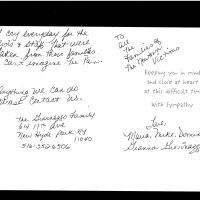 I cry everyday for the
Kids & Staff that were
taken from their families.
I can't imagine the Pain.
Anything We Can do
Please Contact Us.
The Giarnaggi Family
614 11th Ave
New Hyde Park NY
11040
516-352-6506
To
All
The
Families of
The Newtown
Victims
Keeping you in mind
and close at heart
at this difficult time
With Sympathy
Love,
Maria, Mike,
Gianna